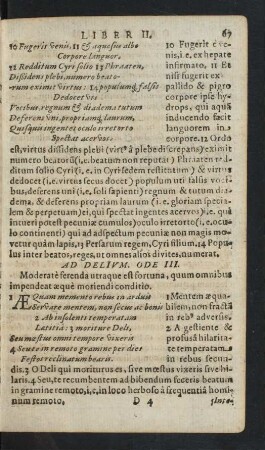 LIBER II. 67
10 Fugerit venis, 11 & aquosus albo
Corpore languor.
12 Redditum Cyri solio 13 Phraaten,
Dissidens plebi, numero beato-
rum eximit virtus: 14 populumq́; falsis
Dedocet uti
Vocibus, regnum & diadema tutum
Deferens uni, propriamq́; laurum,
Quisquis ingentes oculo irretorto
Spectat acervos.
10 Fugerit è ve-
nis, i. e. ex hepate
infirmato, 11 Et
nisi fugerit ex
pallido & pigro
corpore ipsa hy-
drops, quæ aquâ
inducendo facit
languorem in
corpore. 12 Ordo
est, virtus dissidens plebi (virt⁹ à plebe discrepans) eximit
numero beatorū (i. e. beatum non reputat) Phraaten red-
ditum solio Cyri (i. e. in Cyri sedem restitutum) & virtus
dedocet (i. e. virtus secus docet) populum uti falsis vo-
bus, deferens uni (i. e. soli sapienti) regnum & tutum dia-
dema, & deferens propriam laurum (i. e. gloriam specia-
lem & perpetuam) ei, qui spectat ingentes acervos (i. e. qui
intuetur ingentes pecuniæ cumulos) oculo irretorto (i. e. oculo
incontorto) qui ad adspectum pecuniæ non magis mo-
vetur quàm lapis, 13 Persarum regem, Cyri filium. 14 Popu-
lus inter beatos, reges, ut omnes alios divites, numerat.
AD DELIUM. ODE III.
Moderatè ferenda utraque est fortuna, quum omnibus
impendeat æquè moriendi conditio.
1 ÆQuam memento rebus in arduis
Servare mentem, non secus ac bonis
2 Ab insolenti temperatam
Lætitiâ: 3 moriture Deli,
Seu mœstus omni tempore vixeris
4 Seu te in remoto gramine per dies
Festos reclinatum bearis.
1 Mentem æqua-
bilem, non fractā
in reb⁹ adversis.
2 A gestiente &
profusâ hilarita-
te temperatam
in successu re-
dis. 3 O Deli qui moriturus es, sive mœstus vixeris sive hi-
laris. 4 Seu, te recumbentem ad bibendum seceris beatum
in gramine remoto, i. e. in loco herboso à frequentiâ homi-
num remoto, D 4 5 Inte-